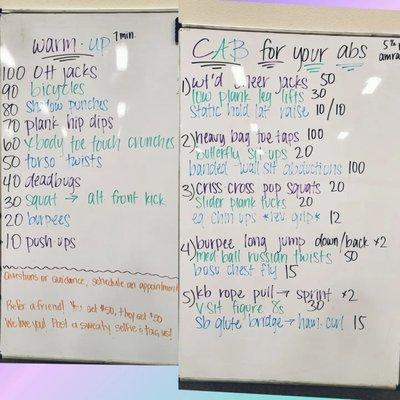 warm-up 1 min.
100 OH jacks
90 bicycles
80 shadow punches
70 plank hip dips
60 x-body toe touch crunches
50 torso twists
40 deadbugs
30 squat → alt front kick
20 burpees
10 push ups
Questions or guidance, schedule an appointment
Refer a friend! You get $50, they get $50
We love you! Post a sweaty selfie & tag us!
CAB for your abs
5 min
amrap
1) wt'd cheer jacks 50
low plank leg lifts 30
static hold lat raise 10/10
2) heavy bag toe taps 100
butterfly sit ups 20
banded wall sit abductions 100
3) criss cross pop squats 20
slider plank tucks 20
eq chin ups *rev. grip* 12
4) burpee long jump down/back x2
med ball russian twists 50
bosu chest fly 15
5) kb rope pull → sprint x2
v sit figure 8s 30
sb glute bridge → ham. curl 15